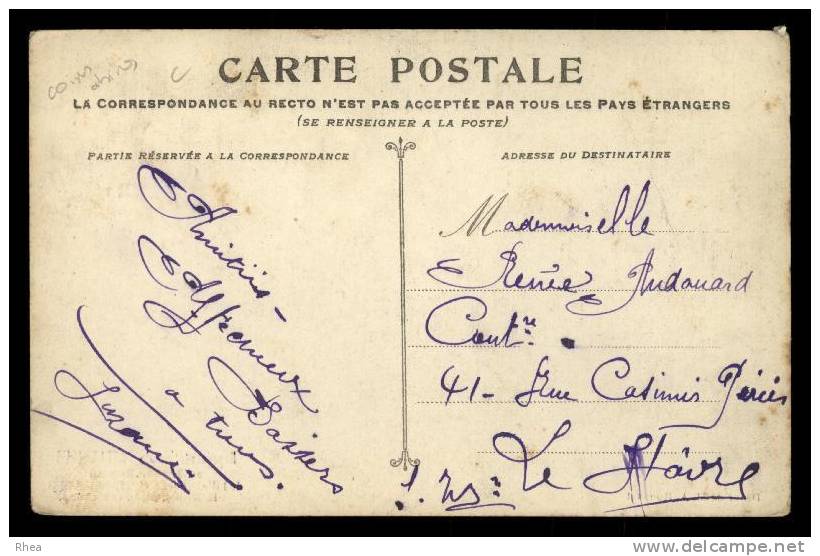 CARTE POSTALE
LA CORRESPONDANCE AU RECTO N'EST PAS ACCEPTÉE PAR TOUS LES PAYS ÉTRANGERS
(SE RENSEIGNER A LA POSTE)
PARTIE RÉSERVÉE A LA CORRESPONDANCE
Amitiés -
Affectueux
Baisers
a tous.
Suzanne
ADRESSE DU DESTINATAIRE
Mademoiselle
Renée Audouard
Cout^re
41 - Rue Casimir Périer
Le Hâvre
Rhea
www.delcampe.net